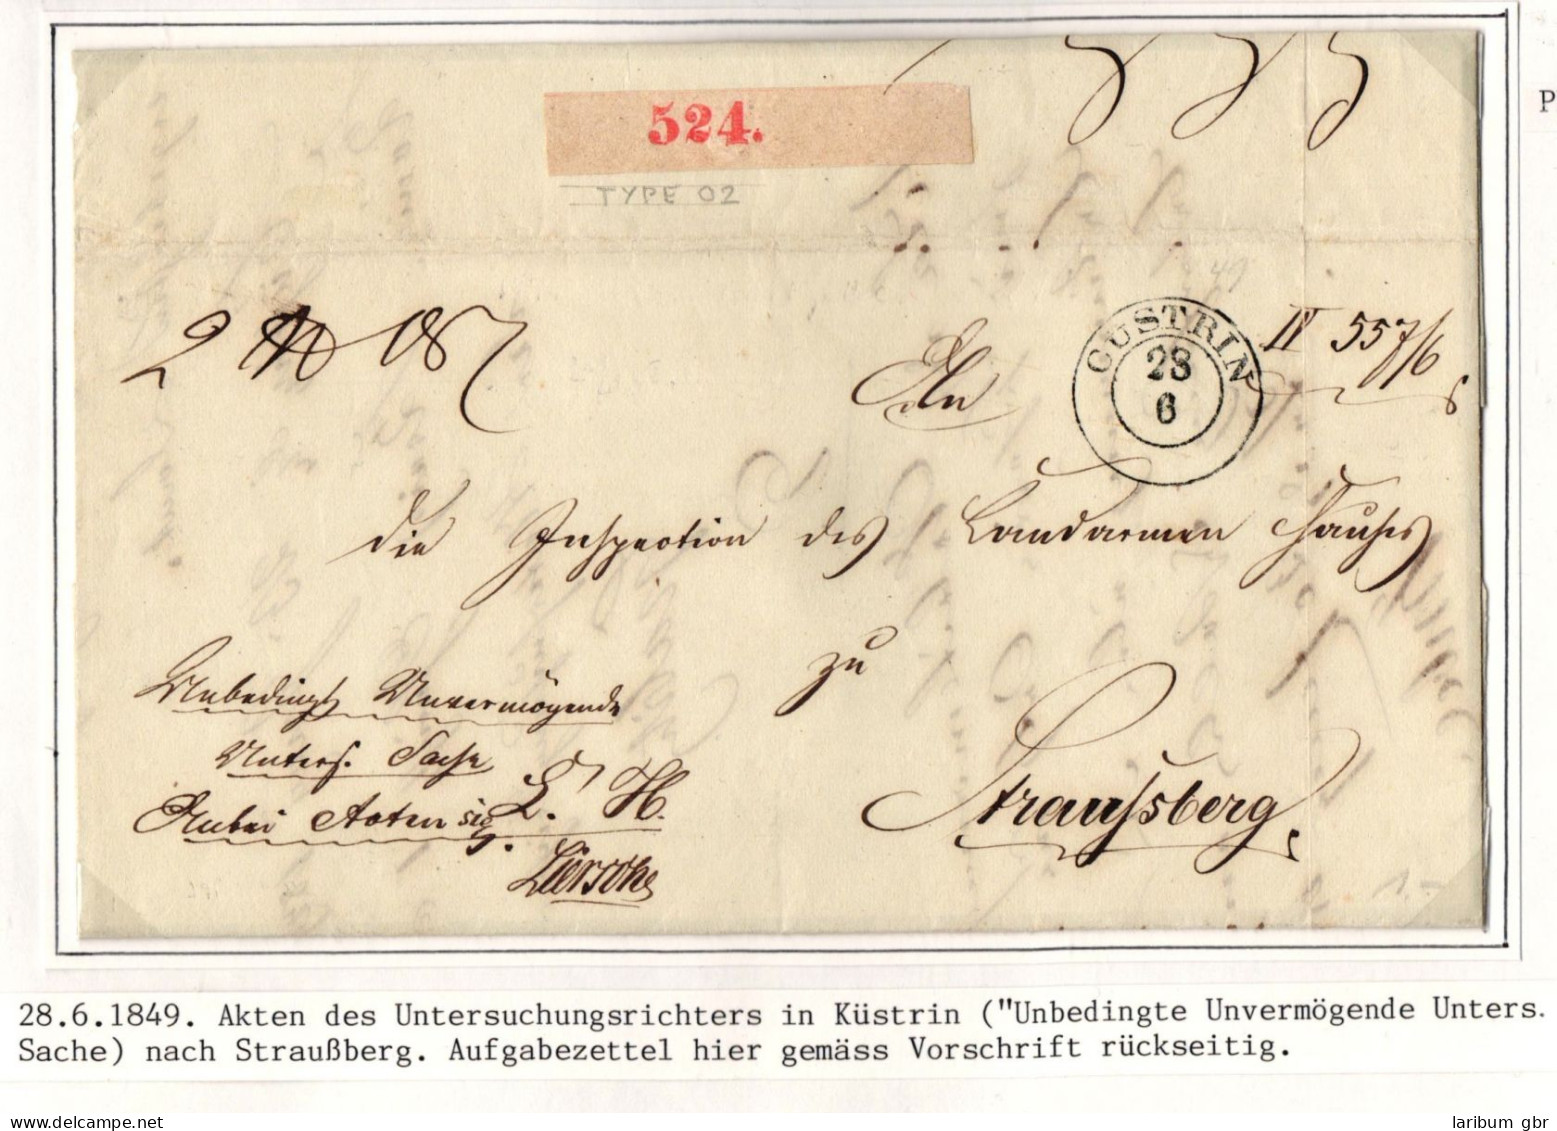 P
524.
TYPE 02
49
2 18
CUSTRIN
28
6
IV 557/6
An
die Inspection des Landarmen Hauses
zu
Straußberg
Unbedingt Unvermögende
Unters. Sache
Anbei Acten sig.
L. H.
Liersche
28.6.1849. Akten des Untersuchungsrichters in Küstrin ("Unbedingte Unvermögende Unters.
Sache) nach Straußberg. Aufgabezettel hier gemäss Vorschrift rückseitig.
laribum gbr